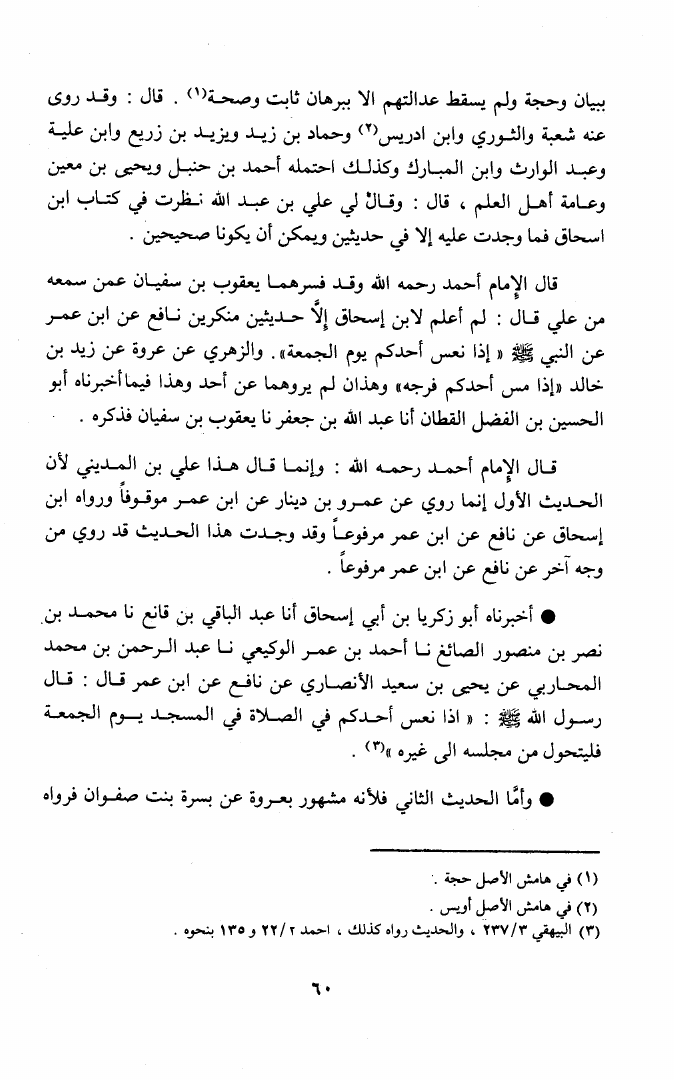 ببيان وحجة ولم يسقط عدالتهم الا ببرهان ثابت وصحة(١) . قال : وقد روى
عنه شعبة والثوري وابن ادريس(٢) وحماد بن زيد ويزيد بن زريع وابن علية
وعبد الوارث وابن المبارك وكذلك احتمله أحمد بن حنبل ويحيى بن معين
وعامة أهل العلم ، قال : وقال لي علي بن عبد الله نظرت في كتاب ابن
اسحاق فما وجدت عليه إلا في حديثين ويمكن أن يكونا صحيحين .
قال الإمام أحمد رحمه الله وقد فسرهما يعقوب بن سفيان عمن سمعه
من علي قال : لم أعلم لابن إسحاق إلَّا حديثين منكرين نافع عن ابن عمر
عن النبي ﷺ « إذا نعس أحدكم يوم الجمعة». والزهري عن عروة عن زيد بن
خالد «إذا مس أحدكم فرجه» وهذان لم يروهما عن أحد وهذا فيما أخبرناه أبو
الحسين بن الفضل القطان أنا عبد الله بن جعفر نا يعقوب بن سفيان فذكره .
قال الإمام أحمد رحمه الله : وإنما قال هذا علي بن المديني لأن
الحديث الأول إنما روي عن عمرو بن دينار عن ابن عمر موقوفاً ورواه ابن
إسحاق عن نافع عن ابن عمر مرفوعاً وقد وجدت هذا الحديث قد روي من
وجه آخر عن نافع عن ابن عمر مرفوعاً .
● أخبرناه أبو زكريا بن أبي إسحاق أنا عبد الباقي بن قانع نا محمد بن
نصر بن منصور الصائغ نا أحمد بن عمر الوكيعي نا عبد الرحمن بن محمد
المحاربي عن يحيى بن سعيد الأنصاري عن نافع عن ابن عمر قال : قال
رسول الله ﷺ : « اذا نعس أحدكم في الصلاة في المسجد يوم الجمعة
فليتحول من مجلسه الى غيره »(٣) .
● وأمَّا الحديث الثاني فلأنه مشهور بعروة عن بسرة بنت صفوان فرواه
(١) في هامش الأصل حجة .
(٢) في هامش الأصل أويس .
(٣) البيهقي ٢٣٧/٣ ، والحديث رواه كذلك ، احمد ٢٢/٢ و ١٣٥ بنحوه .
٦٠